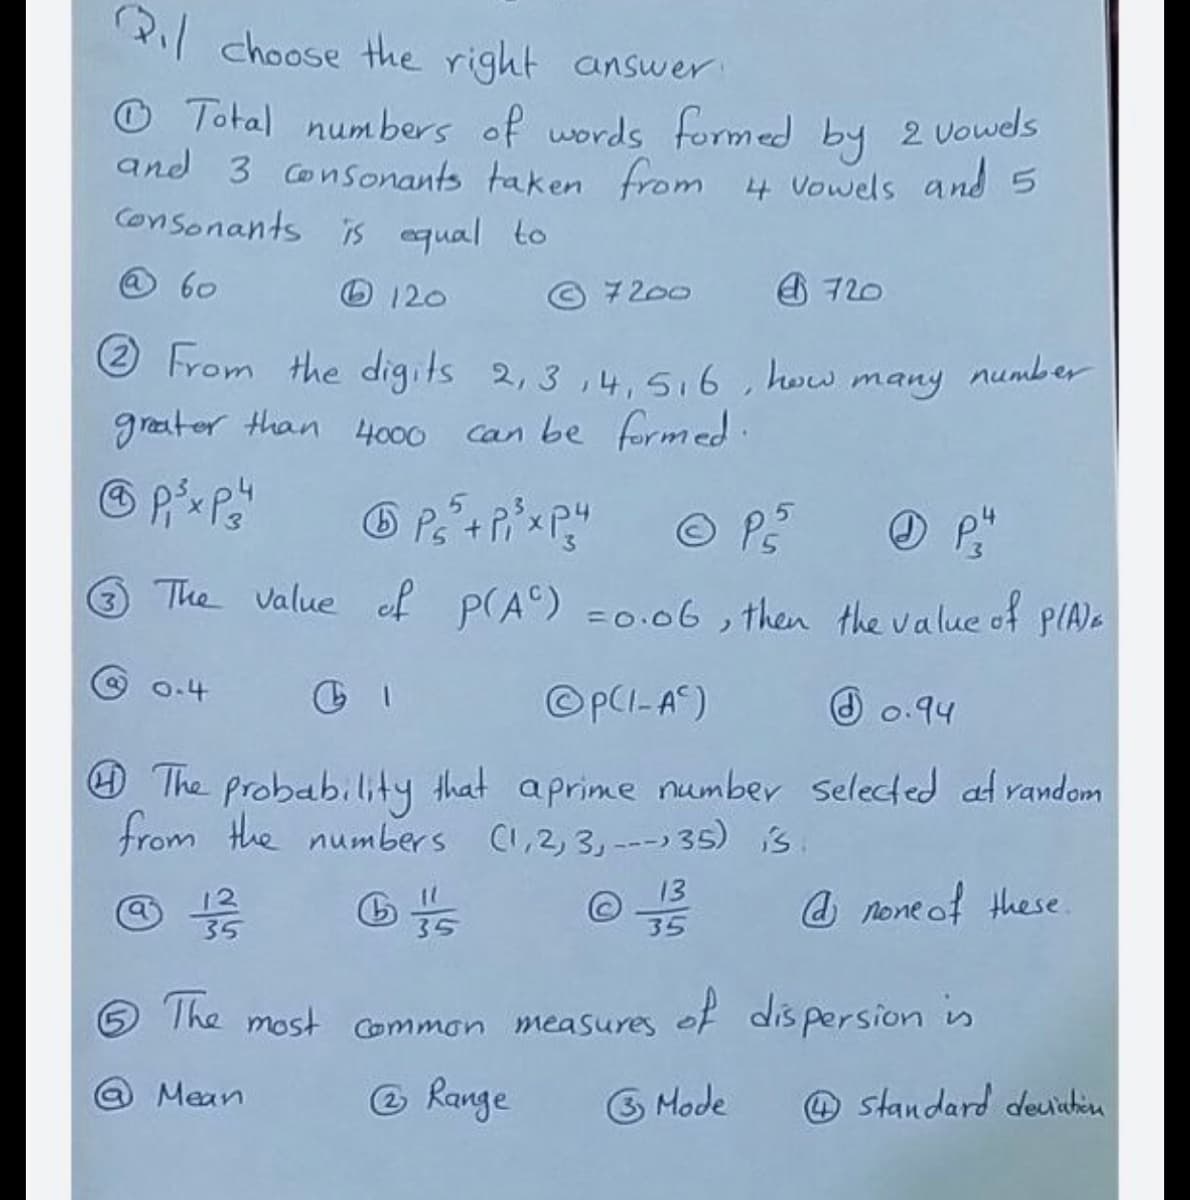 Q.1 choose the right answer.
① Total numbers of words formed by 2 vowels
and 3 consonants taken from 4 vowels and 5
consonants is equal to
ⓐ 60 ⓑ 120 ⓒ 7200 ⓓ 720
② From the digits 2, 3, 4, 5, 6, how many number
greater than 4000 can be formed.
ⓐ P₁³×P₃⁴ ⓑ P₅⁵+P₁³×P₃⁴ ⓒ P₅⁵ ⓓ P₃⁴
③ The value of P(Aᶜ) =0.06, then the value of P(A)=
ⓐ 0.4 ⓑ 1 ⓒ P(1-Aᶜ) ⓓ 0.94
④ The probability that a prime number selected at random
from the numbers (1,2,3,---,35) is.
ⓐ 12/35 ⓑ 11/35 ⓒ 13/35 ⓓ none of these.
⑤ The most common measures of dispersion is
ⓐ Mean ② Range ③ Mode ④ standard deviation